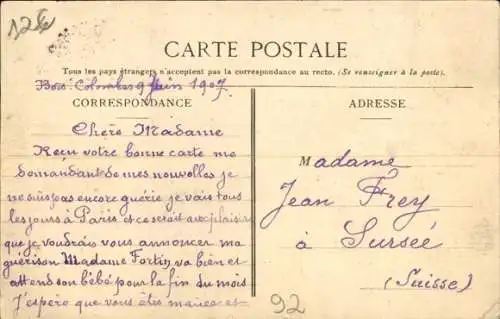 125e
CARTE POSTALE
Tous les pays étrangers n'acceptent pas la correspondance au recto. (Se renseigner à la poste).
Bois-Colombes 9 Juin 1907.
CORRESPONDANCE
Chère Madame
Reçu votre bonne carte me
demandant de mes nouvelles je
ne suis pas encore guérie je vais tous
les jours à Paris et ce serait avec plaisir
que je voudrais vous annoncer ma
guérison Madame Fortin va bien et
attend son bébé pour la fin du mois
J'espère que vous êtes et
ADRESSE
Madame
Jean Frey
à Surseé
(Suisse)
92